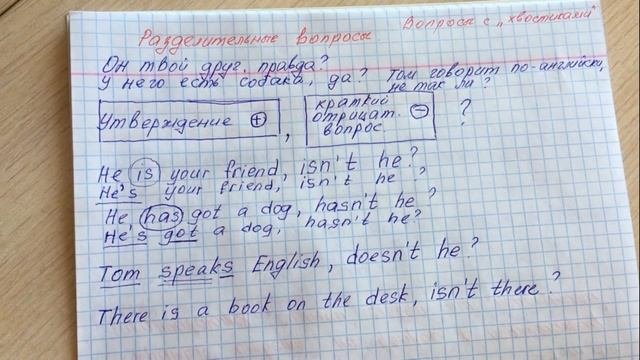 Разделительные вопросы. Вопросы с „хвостиками"
Он твой друг, правда?
У него есть собака, да? Том говорит по-английски, не так ли?
Утверждение + , краткий отрицат. вопрос. - ?
He is your friend, isn't he?
He's your friend, isn't he?
He has got a dog, hasn't he?
He's got a dog, hasn't he?
Tom speaks English, doesn't he?
There is a book on the desk, isn't there?